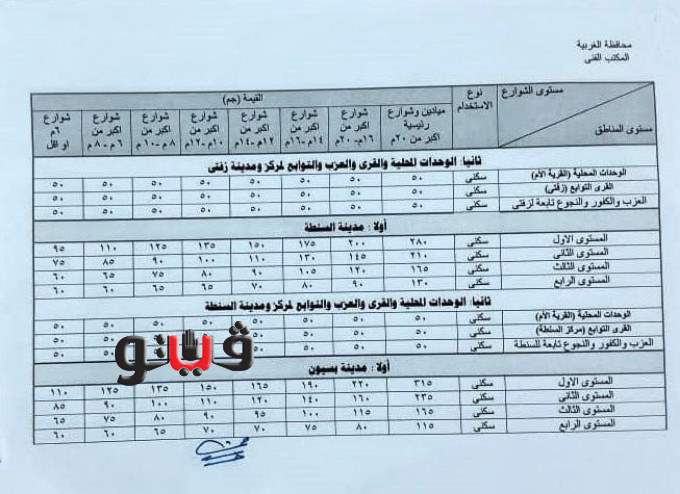 محافظة الغربية
المكتب الفنى
مستوى الشوارع
مستوى المناطق
نوع الاستخدام
القيمة (جم)
ميادين وشوارع رئيسية اكبر من ٢٠م
شوارع اكبر من ١٦م-٢٠م
شوارع اكبر من ١٤م-١٦م
شوارع اكبر من ١٢م-١٤م
شوارع اكبر من ١٠م-١٢م
شوارع اكبر من ٨م-١٠م
شوارع اكبر من ٦م-٨م
شوارع ٦م او اقل
ثانيا: الوحدات المحلية والقرى والعزب والتوابع لمركز ومدينة زفتى
الوحدات المحلية (القرية الأم) سكنى ٥٠ ٥٠ ٥٠ ٥٠ ٥٠ ٥٠ ٥٠ ٥٠
القرى التوابع (زفتى) سكنى ٥٠ ٥٠ ٥٠ ٥٠ ٥٠ ٥٠ ٥٠ ٥٠
العزب والكفور والنجوع تابعة لزفتى سكنى ٥٠ ٥٠ ٥٠ ٥٠ ٥٠ ٥٠ ٥٠ ٥٠
أولا: مدينة السنطة
المستوى الاول سكنى ٢٨٠ ٢٠٠ ١٧٥ ١٥٠ ١٣٥ ١٢٥ ١١٠ ٩٥
المستوى الثانى سكنى ٢١٠ ١٤٥ ١٣٠ ١١٠ ١٠٠ ٩٠ ٨٥ ٧٥
المستوى الثالث سكنى ١٦٥ ١٢٠ ١٠٥ ٩٠ ٨٠ ٧٥ ٦٥ ٦٠
المستوى الرابع سكنى ١٣٠ ٩٠ ٨٠ ٧٠ ٦٥ ٦٥ ٦٠ ٦٠
ثانيا: الوحدات المحلية والقرى والعزب والتوابع لمركز ومدينة السنطة
الوحدات المحلية (القرية الأم) سكنى ٥٠ ٥٠ ٥٠ ٥٠ ٥٠ ٥٠ ٥٠
القرى التوابع (مركز السنطة) سكنى ٥٠ ٥٠ ٥٠ ٥٠
العزب والكفور والنجوع تابعة للسنطة سكنى ٥٠ ٥٠ ٥٠ ٥٠
ڤيتو
أولا: مدينة بسيون
المستوى الاول سكنى ٣١٥ ٢٢٠ ١٩٠ ١٦٥ ١٥٠ ١٣٥ ١٢٥ ١١٠
المستوى الثانى سكنى ٢٣٥ ١٦٠ ١٤٠ ١٢٠ ١١٠ ١٠٠ ٩٠ ٨٥
المستوى الثالث سكنى ١٦٥ ١١٥ ١٠٠ ٩٥ ٩٠ ٨٠ ٧٥ ٦٥
المستوى الرابع سكنى ١١٥ ٨٠ ٧٥ ٧٠ ٧٠ ٦٥ ٦٠ ٦٠